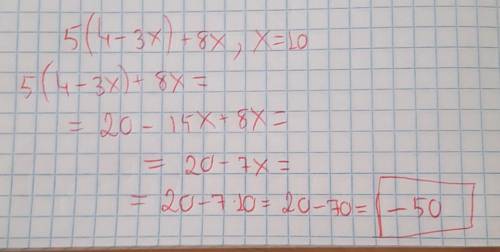 5(4-3x)+8x, x=10
5(4-3x)+8x=
= 20-15x+8x=
= 20-7x=
= 20-7·10=20-70=-50